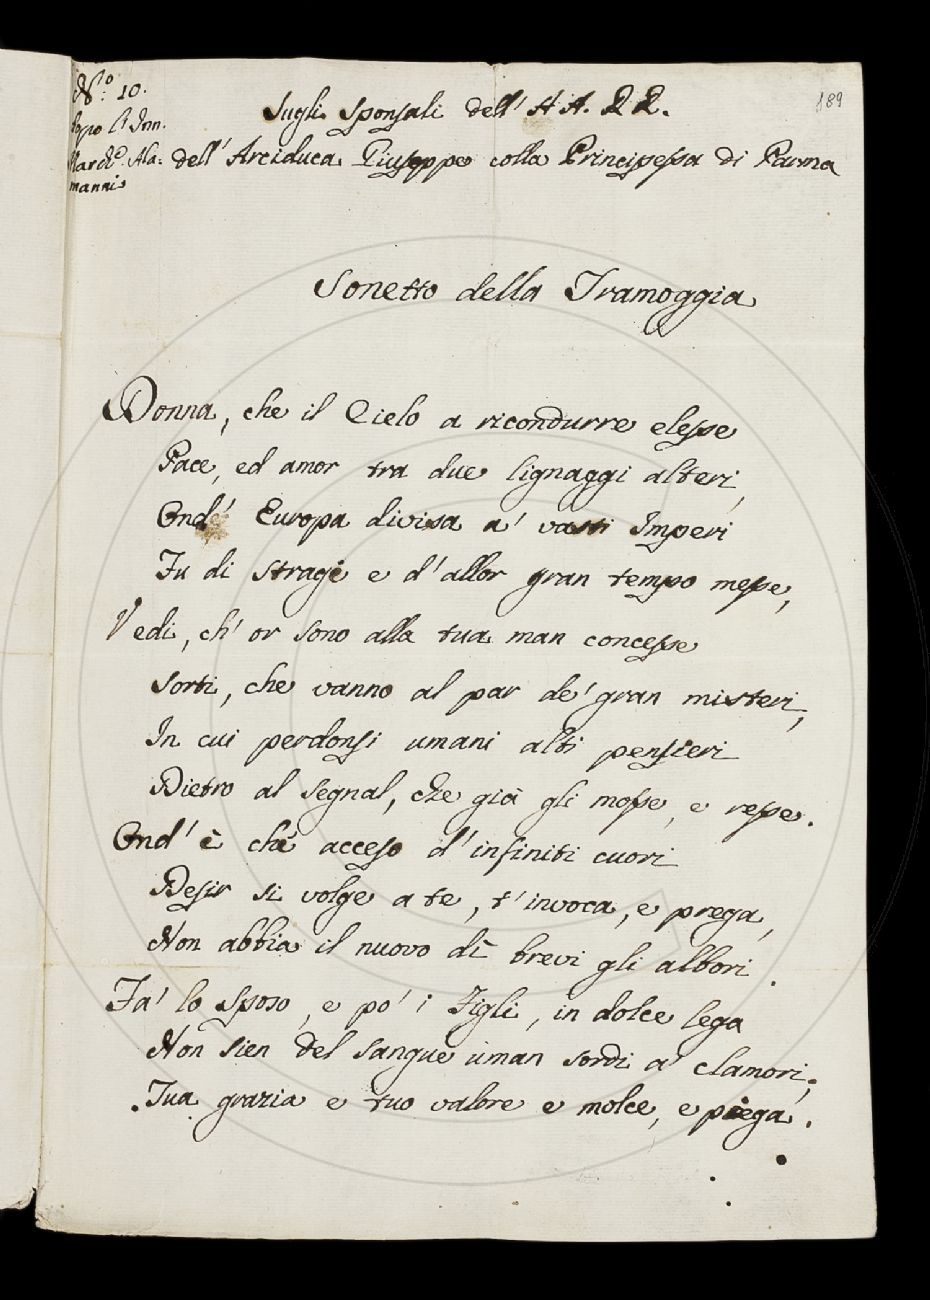 N.º 10.
189
Sugli Sponsali dell' A A. R R.
dell' Arciduca Giuseppe colla Principessa di Parma
Marche. Ala:
manni
Sonetto della Tramoggia
Donna, che il Cielo a ricondurre elesse
Pace, ed amor tra due lignaggi alteri,
Ond' Europa divisa a' vasti Imperi
Fu di strage e d'allor gran tempo messe,
Vedi, ch' or sono alla tua man concesse
Sorti, che vanno al par de' gran misteri,
In cui perdonsi umani alti pensieri
Dietro al segnal, che già gli mosse, e resse.
Ond' è che acceso d'infiniti cuori
Desir si volge a te, t'invoca, e prega,
Non abbia il nuovo dì brevi gli albori.
Fa' lo Sposo, e po' i Figli, in dolce lega
Non sien del sangue uman sordi a' clamori;
Tua grazia e tuo valore e molce, e piega.